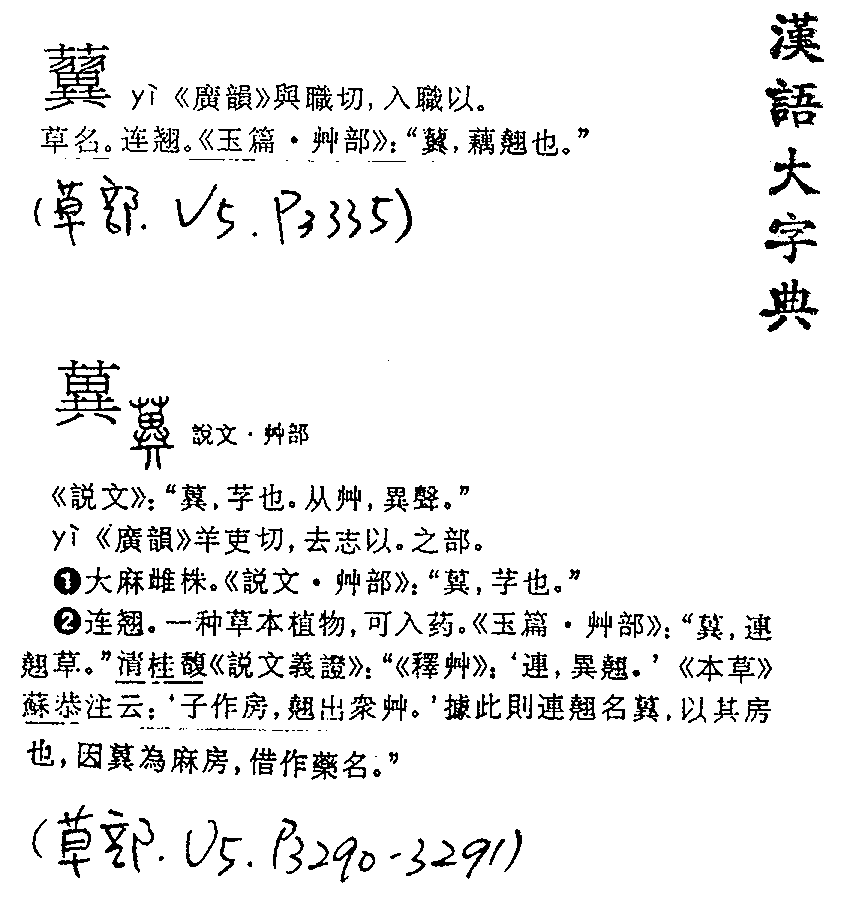 漢語大字典
yì《廣韻》與職切，入職以。
草名。连翘。《玉篇·艸部》：“，藕翹也。”
（草部. V5. P3335）
説文·艸部
《説文》：“，芓也。从艸，異聲。”
yì《廣韻》羊吏切，去志以。之部。
❶大麻雌株。《説文·艸部》：“，芓也。”
❷连翘。一种草本植物，可入药。《玉篇·艸部》：“，連
翹草。”清桂馥《説文義證》：“《釋艸》：‘連，異翹。’《本草》
蘇恭注云：‘子作房，翹出衆艸。’據此則連翹名，以其房
也，因為麻房，借作藥名。”
（草部. V5. P3290-3291）